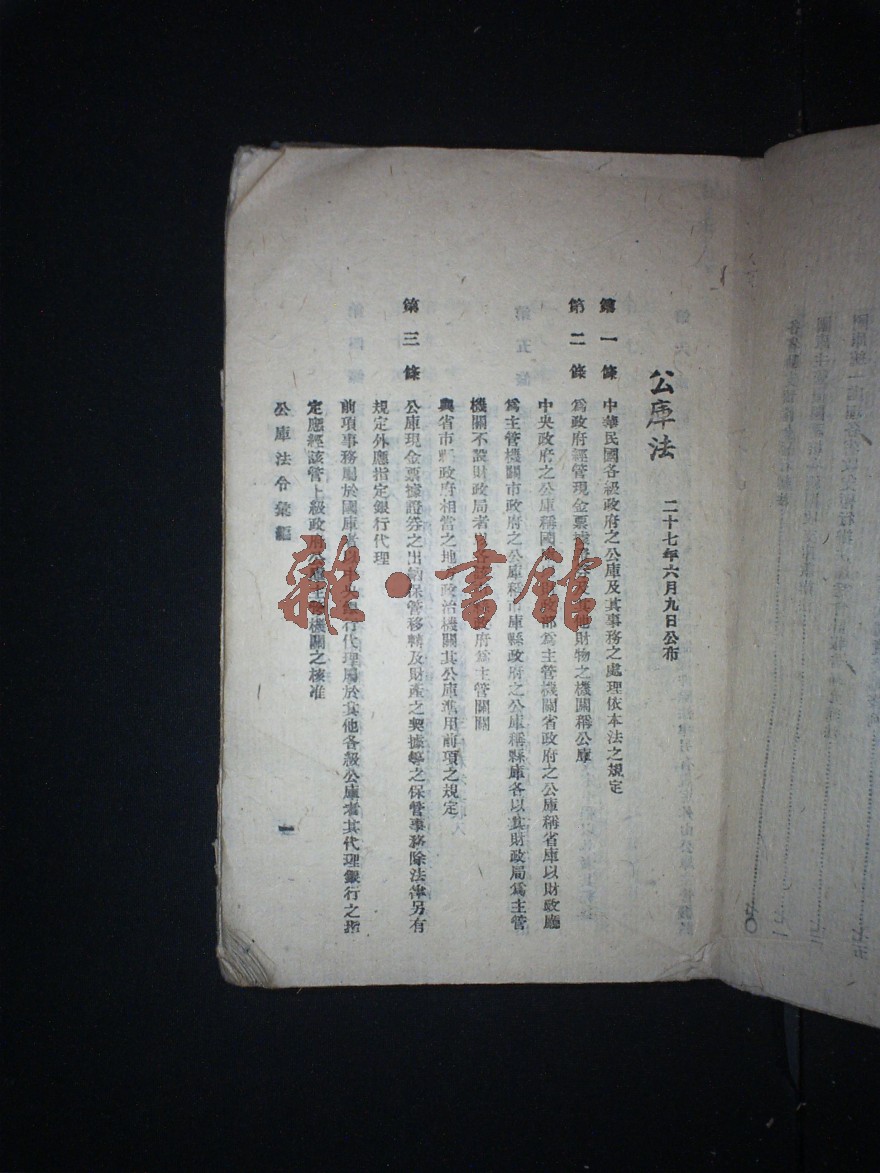 公庫法
二十七年六月九日公布
第一條 中華民國各級政府之公庫及其事務之處理依本法之規定
第二條 爲政府經管現金票據證券及其他財物之機關稱公庫
中央政府之公庫稱國庫以財政部爲主管機關省政府之公庫稱省庫以財政廳
爲主管機關市政府之公庫稱市庫縣政府之公庫稱縣庫各以其財政局爲主管
機關不設財政局者以各該政府爲主管關關
與省市縣政府相當之地方政治機關其公庫準用前項之規定
第三條 公庫現金票據證券之出納保管移轉及財產之契據等之保管事務除法律另有
規定外應指定銀行代理
前項事務屬於國庫者以中央銀行代理屬於其他各級公庫者其代理銀行之指
定應經該管上級政府公庫主管機關之核准
公庫法令彙編
一
雜·書館